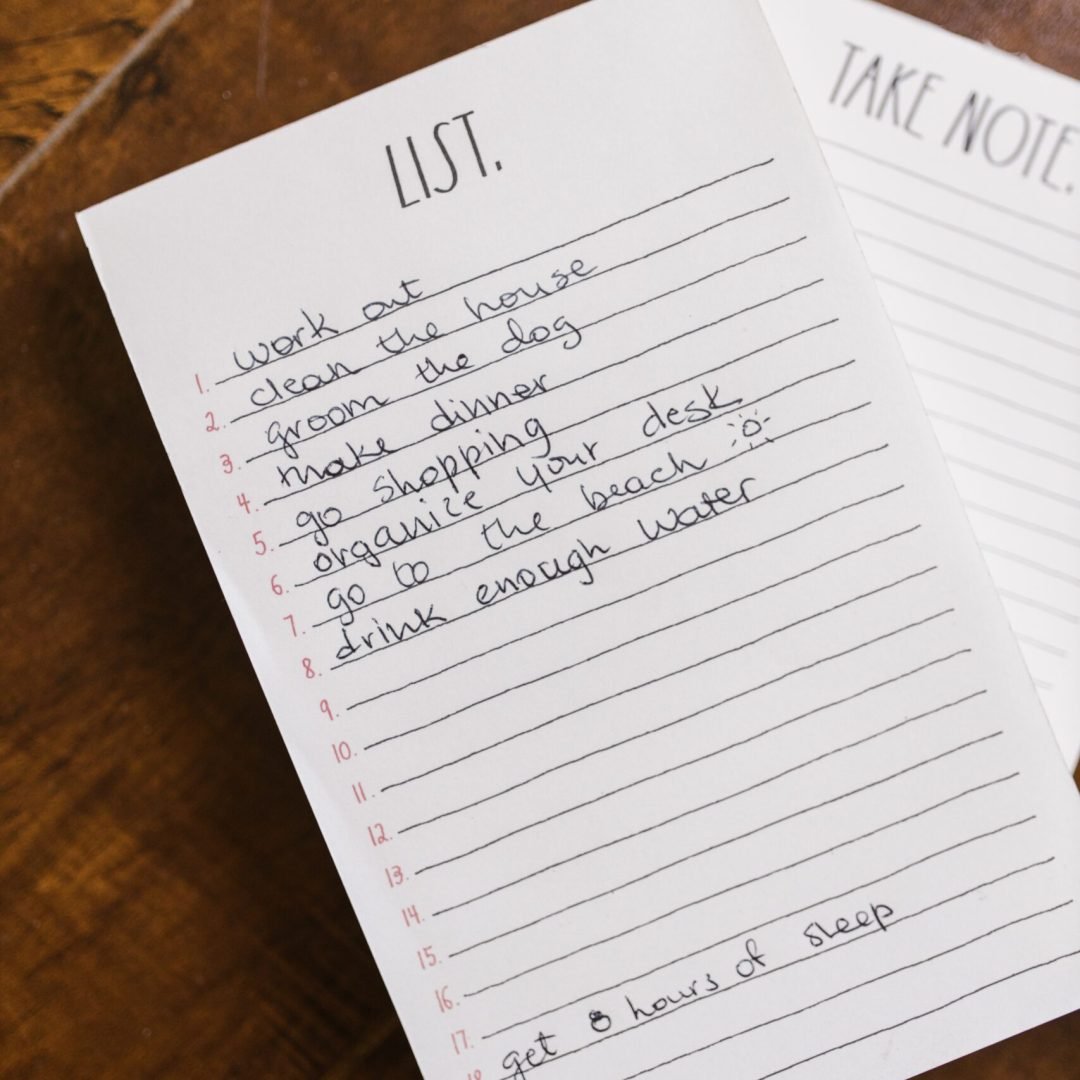 LIST.
1. work out
2. clean the house
3. groom the dog
4. make dinner
5. go shopping
6. organize your desk
7. go to the beach
8. drink enough water
9.
10.
11.
12.
13.
14.
15.
16.
17.
18 get 8 hours of sleep
TAKE NOTE.